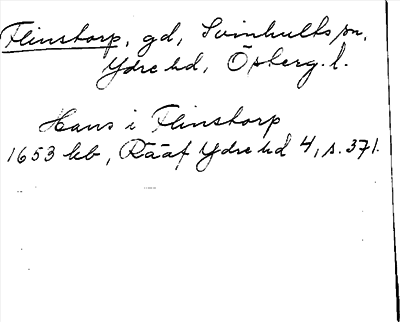 Flinstorp, gd, Svinhults sn,
Ydre hd, Österg. l.
Hans i Flinstorp
1653 kb, Rääf Ydre hd 4, s. 371.